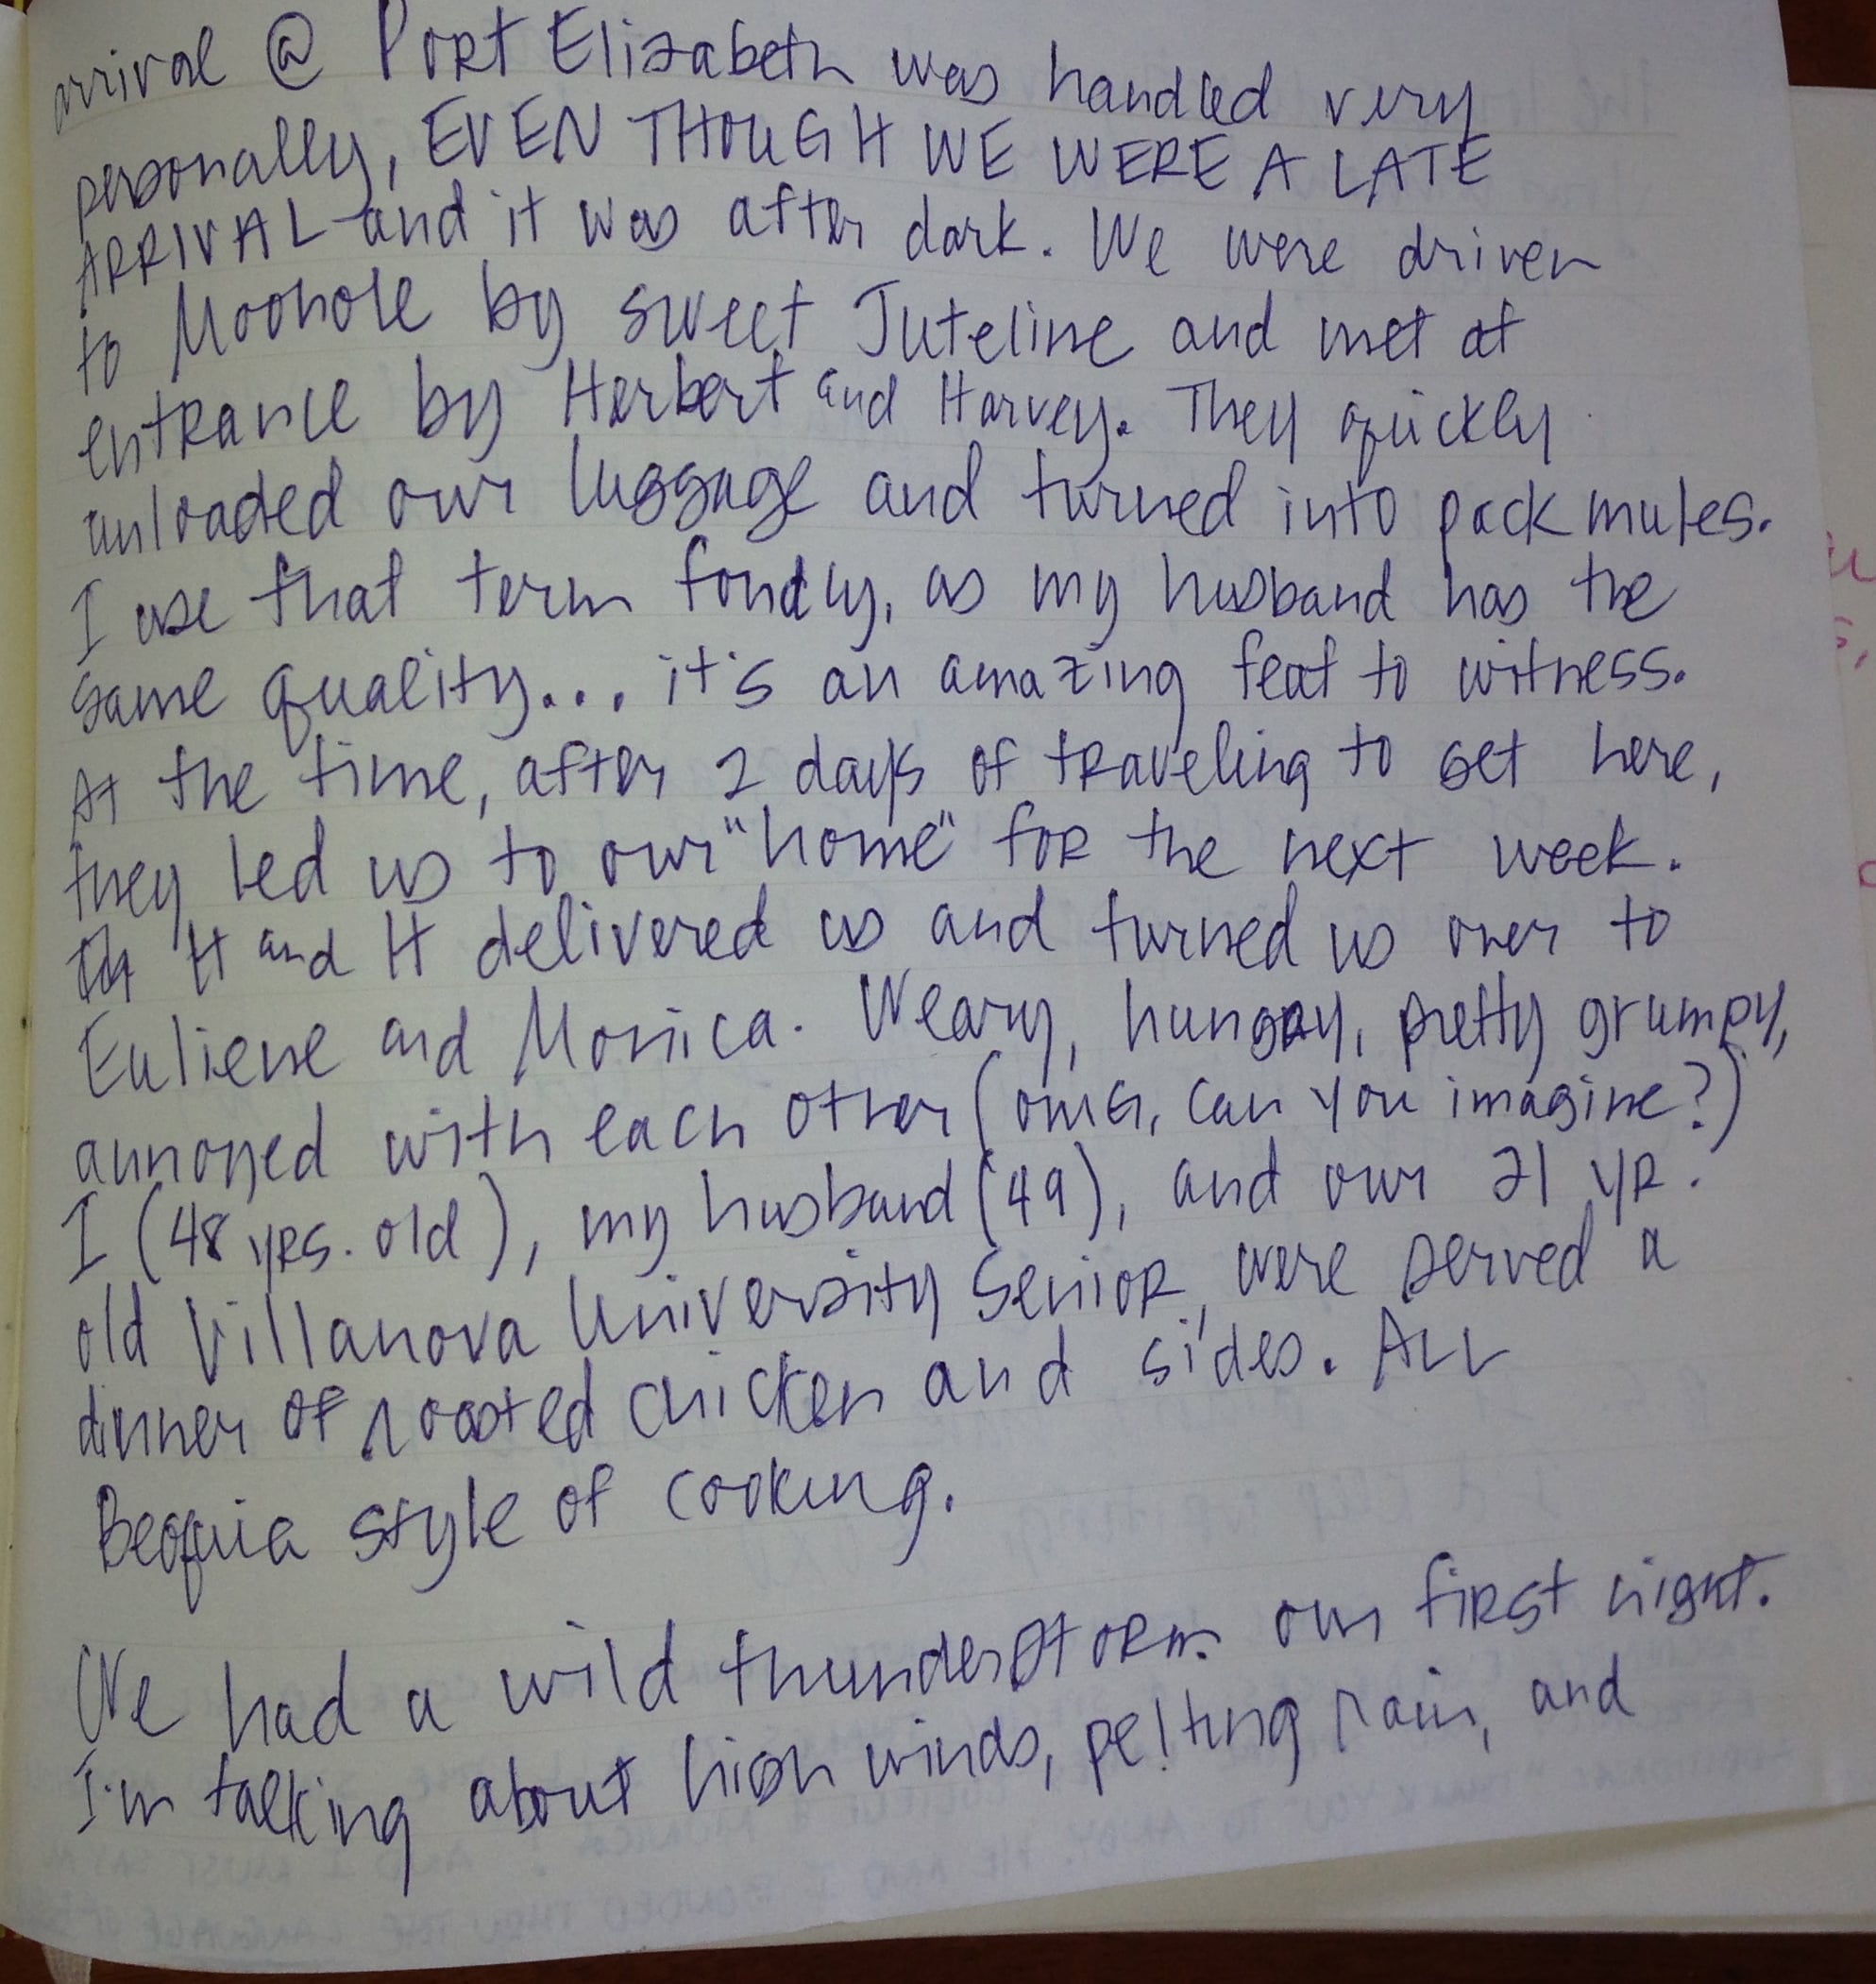 arrival @ Port Elizabeth was handled very
personally, EVEN THOUGH WE WERE A LATE
ARRIVAL and it was after dark. We were driven
to Moohole by sweet Juteline and met at
entrance by Herbert and Harvey. They quickly
unloaded our luggage and turned into pack mules.
I use that term fondly, as my husband has the
same quality... it's an amazing feat to witness.
At the time, after 2 days of traveling to get here,
they led us to our "home" for the next week.
H and H delivered us and turned us over to
Euliene and Monica. Weary, hungry, pretty grumpy,
annoyed with each other (omg, can you imagine?)
I (48 yrs. old), my husband (49), and our 21 yr.
old Villanova University Senior, were served a
dinner of roasted chicken and sides. ALL
Bequia style of cooking.
We had a wild thunderstorm our first night.
I'm talking about high winds, pelting rain, and